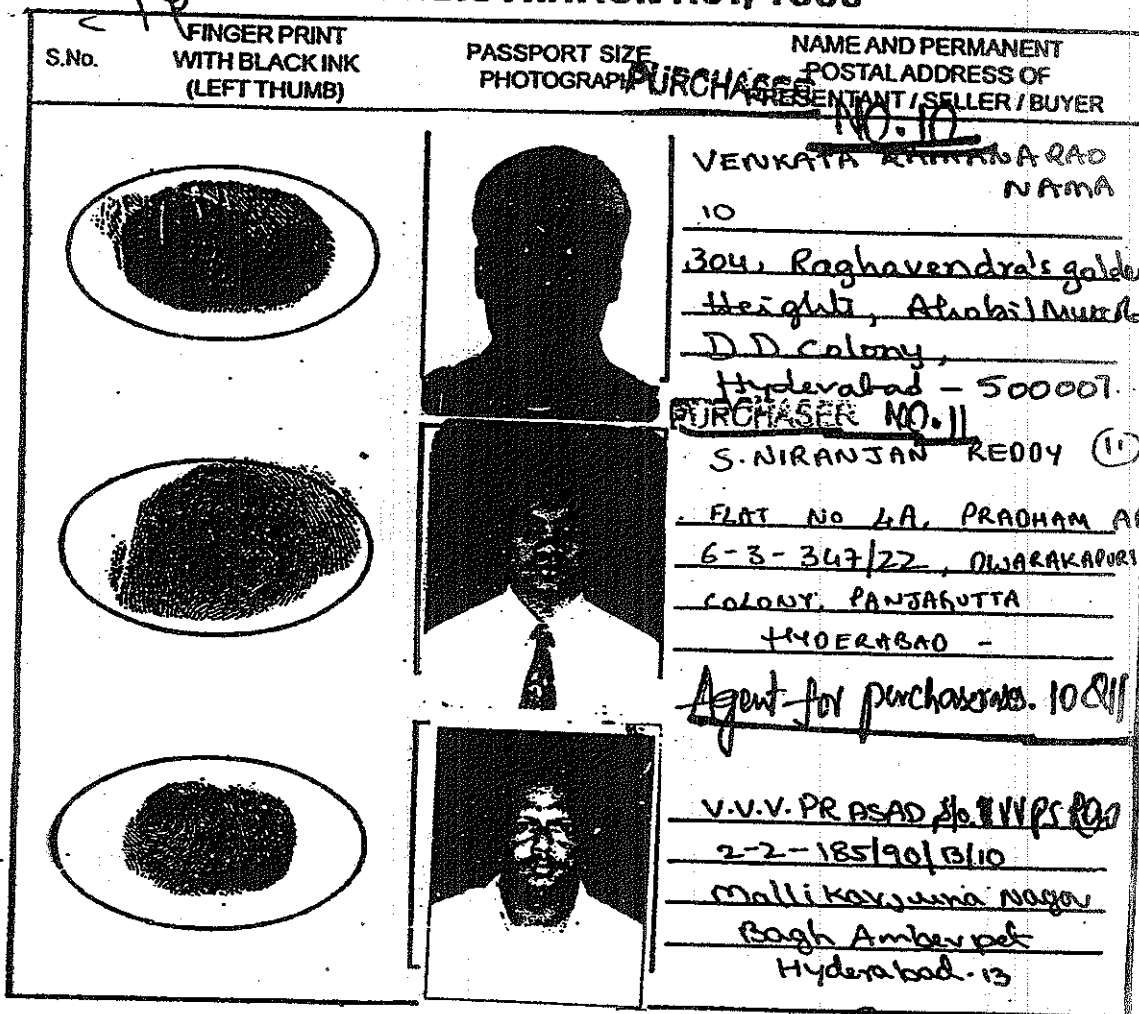 S.No.
FINGER PRINT
WITH BLACK INK
(LEFT THUMB)
PASSPORT SIZE
PHOTOGRAPH
NAME AND PERMANENT
POSTAL ADDRESS OF
PRESENTANT / SELLER / BUYER
PURCHASER
NO.10
VENKATA RAMANA RAO
NAMA
10
304, Raghavendra's golde
Heights, Ahobil
D D colony,
Hyderabad - 500007.
PURCHASER NO.11
S. NIRANJAN REDDY (11)
FLAT No 4A, PRADHAM A
6-3-347/22, DWARAKAPURI
COLONY, PANJAGUTTA
HYDERABAD -
Agent for purchaser 10 & 11
V.V.V. PRASAD S/o.
2-2-185/90/B/10
Mallikarjuna Nagar
Bagh Amberpet
Hyderabad-13